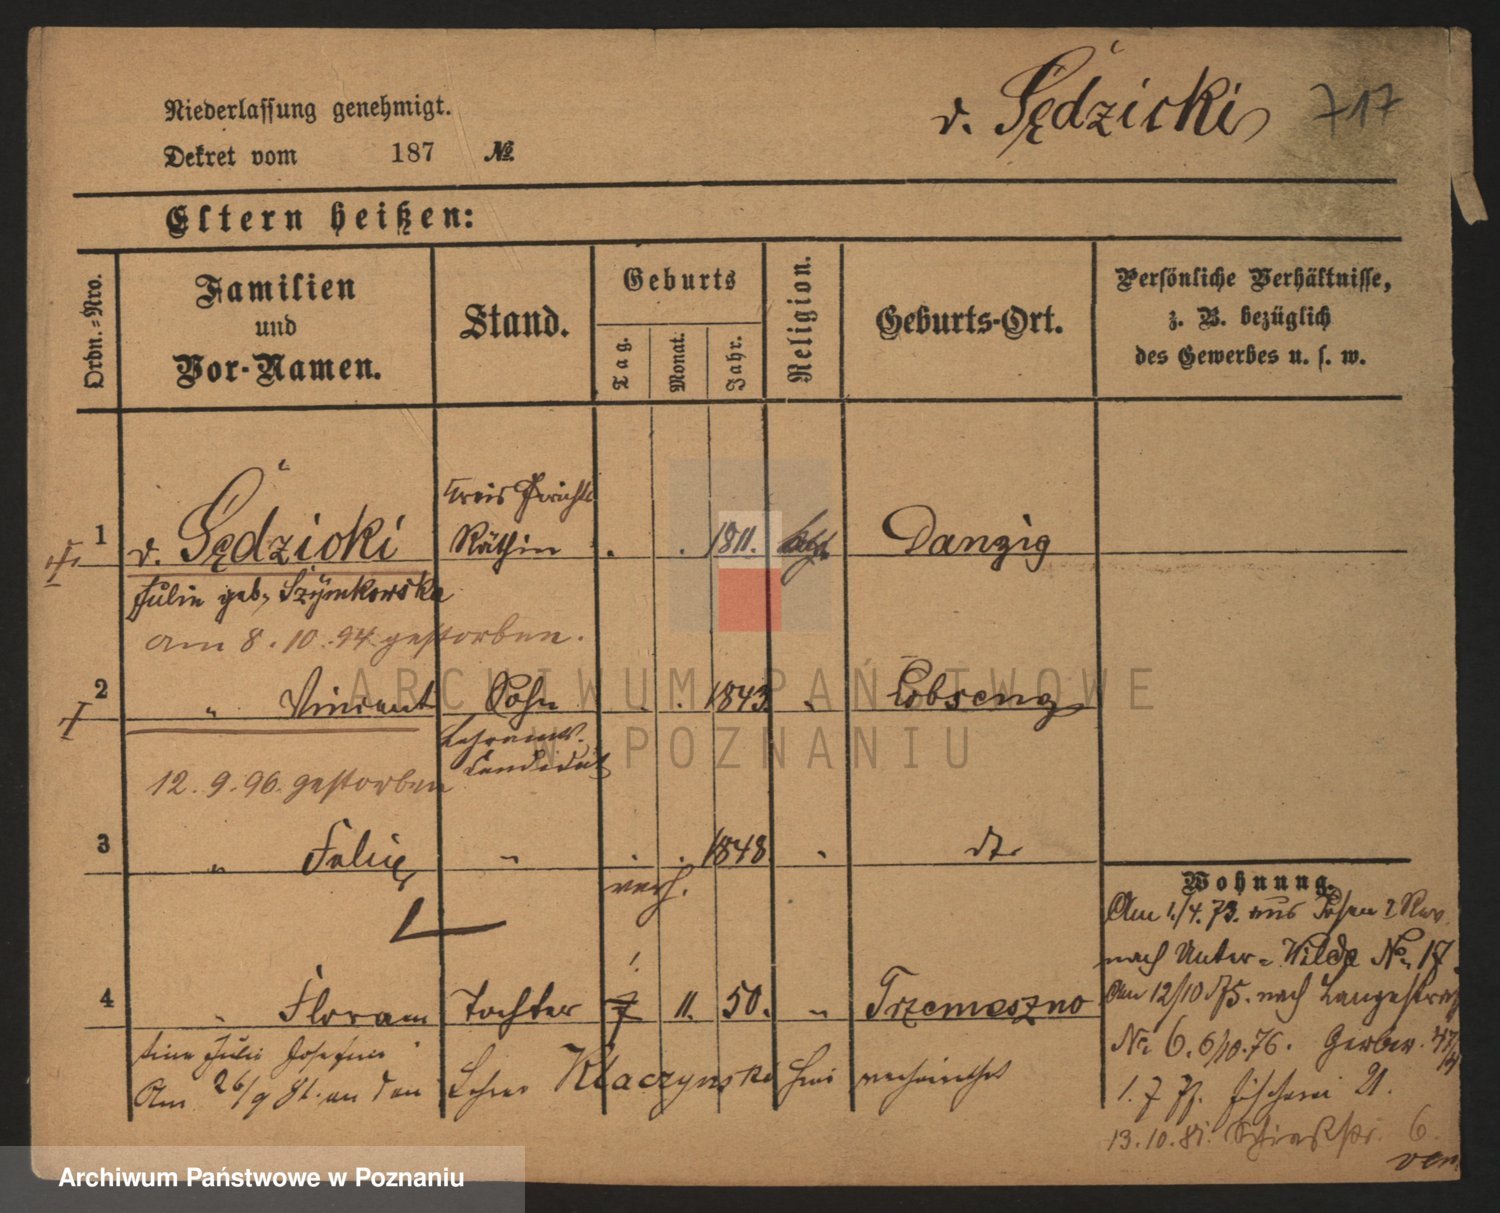 Niederlassung genehmigt.
Dekret vom 187 №
v. Sędzicki 717
Eltern heißen:
Ordn.-Nro.
Familien
und
Vor-Namen.
Stand.
Geburts
Tag.
Monat.
Jahr.
Religion.
Geburts-Ort.
Persönliche Verhältnisse,
z. B. bezüglich
des Gewerbes u. s. w.
Kreis Gerichts
1 v. Sędzicki Räthin . . 1811. kath Danzig
Julie geb. Szymkowska
am 8.10.94 gestorben.
2 " Vincent Sohn . . 1843 " Lobsens
Lehramts-
Candidat
12.9.96. gestorben
3 " Felix " . . 1848 " dto
verh.
Wohnung.
Am 1./4. 73. aus Posen
nach Unter-Wilda No. 17.
4 " Tochter 7 11. 50. " Trzemeszno
Am 12/10 75. nach Langestraße
No 6. 6/10.76. Gerber. 47/
Julie Josefine
Am 26/9 an den Lehrer Klaczynski hier verheirathet
1.7 Fischerei 21.
13.10.81. Schießstr. 6.
ARCHIWUM PAŃSTWOWE
W POZNANIU
Archiwum Państwowe w Poznaniu